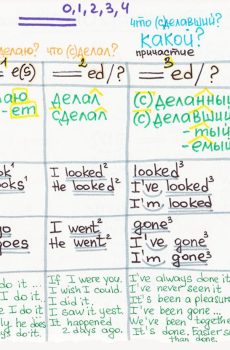 0, 1, 2, 3, 4
что (сделавший?)
делаю? что (с)делал? какой?
причастие
1 e(s) 2 ed/? 3 ed/?
лаю делал (с)деланный
-ет сделал (с)делавший
-тый
-емый
ok¹ I looked² looked³
ooks¹ He looked² I've looked³
I'm looked³
go I went² gone³
goes He went² I've gone³
I'm gone³
do it... If I were you. I've always done it
I do it. I wish I could. I've never seen it
e do it. I did it. It's been a pleasure
2 I do it I saw it yest. I've been gone...
ly he does It happened We've been together
ys do it. 2 days ago. It's done. Easier said
than done.